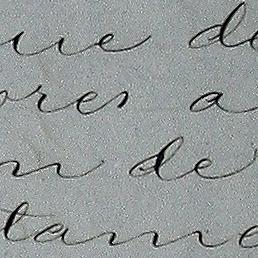 ue de
res a
n de
tame